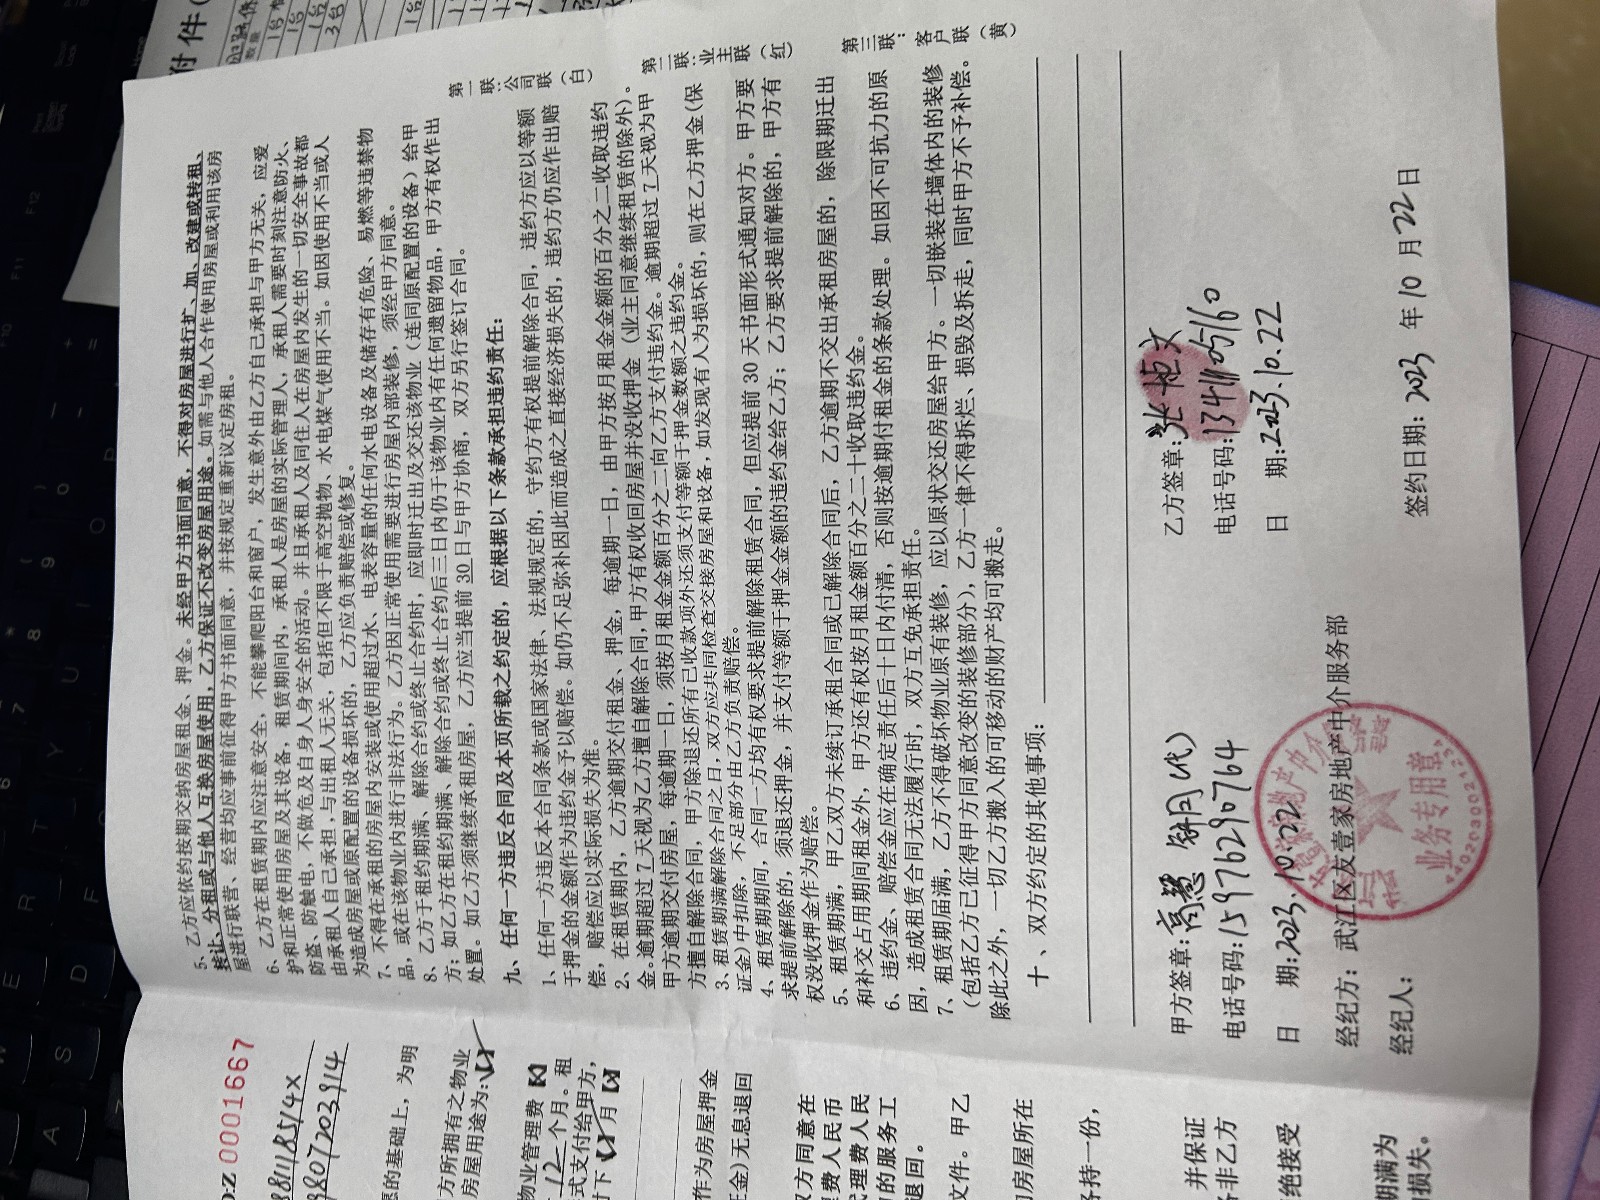 5、乙方应依约按期交纳房屋租金、押金。未经甲方书面同意，不得对房屋进行扩、加、改建或转租、
转让、分租或与他人互换房屋使用，乙方保证不改变房屋用途。如需与他人合作使用房屋或利用该房
屋进行联营、经营均应事前征得甲方书面同意，并按规定重新议定房租。
6、乙方在租赁期内应注意安全，不能攀爬阳台和窗户，发生意外由乙方自己承担与甲方无关，应爱
护和正常使用房屋及其设备，租赁期间内，承租人是房屋的实际管理人，承租人需要时刻注意防火、
防盗、防触电，不做危及自身人身安全的活动。并且承租人及同住人在房屋内发生的一切安全事故都
由承租人自己承担，与出租人无关，包括但不限于高空抛物、水电煤气使用不当。如因使用不当或人
为造成房屋或原配置的设备损坏的，乙方应负责赔偿或修复。
7、不得在承租的房屋内安装或使用超过水、电表容量的任何水电设备及储存有危险、易燃等违禁物
品，或在该物业内进行非法行为。乙方因正常使用需要进行房屋内部装修，须经甲方同意。
8、乙方于租约期满、解除合约或终止合约时，应即时迁出及交还该物业（连同原配置的设备）给甲
方；如乙方在租约期满、解除合约或终止合约后三日内仍于该物业内有任何遗留物品，甲方有权作出
处置。如乙方须继续承租房屋，乙方应当提前 30 日与甲方协商，双方另行签订合同。
九、任何一方违反合同及本页所载之约定的，应根据以下条款承担违约责任：
1、任何一方违反本合同条款或国家法律、法规规定的，守约方有权提前解除合同，违约方应以等额
于押金的金额作为违约金予以赔偿。如仍不足弥补因此而造成之直接经济损失的，违约方仍应作出赔
偿，赔偿应以实际损失为准。
2、在租赁期内，乙方逾期交付租金、押金，每逾期一日，由甲方按月租金金额的百分之二收取违约
金。逾期超过 7 天视为乙方擅自解除合同，甲方有权收回房屋并没收押金（业主同意继续租赁的除外）。
甲方逾期交付房屋，每逾期一日，须按月租金金额百分之二向乙方支付违约金。逾期超过 7 天视为甲
方擅自解除合同，甲方除退还所有已收款项外还须支付等额于押金数额之违约金。
3、租赁期满解除合同之日，双方应共同检查交接房屋和设备，如发现有人为损坏的，则在乙方押金（保
证金）中扣除，不足部分由乙方负责赔偿。
4、租赁期期间，合同一方均有权要求提前解除租赁合同，但应提前 30 天书面形式通知对方。甲方要
求提前解除的，须退还押金，并支付等额于押金金额的违约金给乙方；乙方要求提前解除的，甲方有
权没收押金作为赔偿。
5、租赁期满，甲乙双方未续订承租合同或已解除合同后，乙方逾期不交出承租房屋的，除限期迁出
和补交占用期间租金外，甲方还有权按月租金额百分之二十收取违约金。
6、违约金、赔偿金应在确定责任后十日内付清，否则按逾期付租金的条款处理。如因不可抗力的原
因，造成租赁合同无法履行时，双方互免承担责任。
7、租赁期届满，乙方不得破坏物业原有装修，应以原状交还房屋给甲方。一切嵌装在墙体内的装修
（包括乙方已征得甲方同意改变的装修部分），乙方一律不得拆烂、损毁及拆走，同时甲方不予补偿。
除此之外，一切乙方搬入的可移动的财产均可搬走。
十、双方约定的其他事项：
甲方签章：高慧 (代)
乙方签章：张恒文
电话号码：15976290764
电话号码：13411105160
日 期：2023.10.22
日 期：2023.10.22
经纪方：武江区友壹家房地产中介服务部
经纪人：
签约日期：2023 年 10 月 22 日
业务专用章
第一联：公司联（白）
第二联：业主联（红）
第三联：客户联（黄）
0001667
愿的基础上，为明
方所拥有之物业
房屋用途为：
物业管理费
12 个月。租
式支付给甲方，
作为房屋押金
金)无息退回
方同意在
费人民币
理费人民
的服务工
退回。
文件。甲乙
房屋所在
各持一份，
并保证
各非乙方
绝接受
期满为
损失。
附件
数量